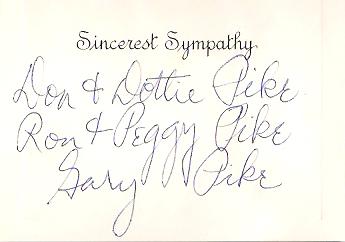 Sincerest Sympathy
Don & Dottie Pike
Ron & Peggy Pike
Gary Pike